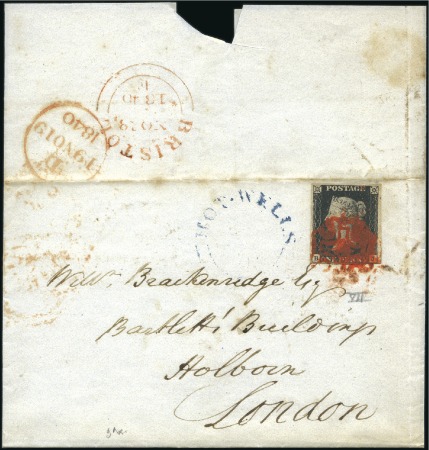 BRISTOL
NO 18
1840
19 NO 19
1840
HOTWELLS
POSTAGE
Wm. Brackenridge Esq
Bartlett's Buildings
Holborn
London